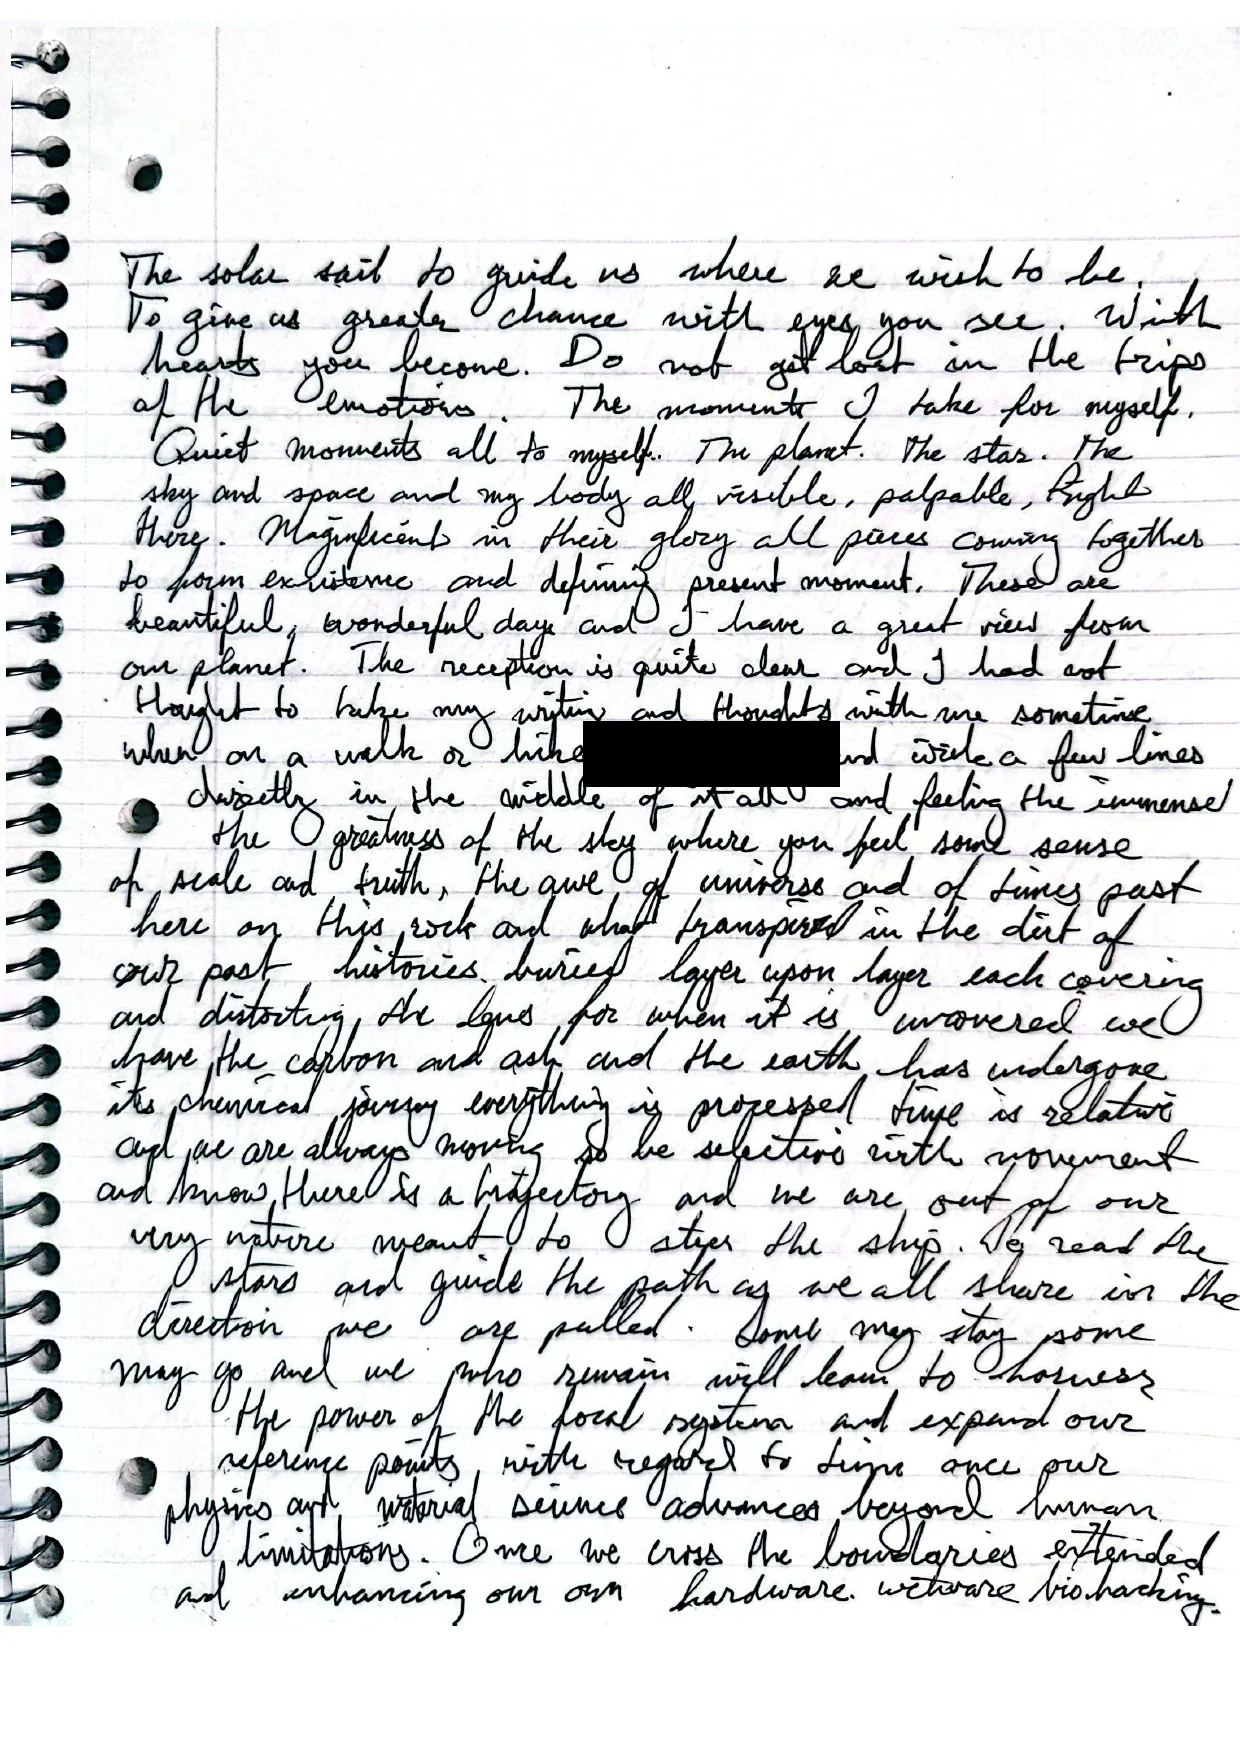 The solar sail to guide us where we wish to be.
To give us greater chance with eyes you see. With
hearts you become. Do not get lost in the trips
of the emotions. The moments I take for myself.
Quiet moments all to myself. The planet. The star. The
sky and space and my body all visible, palpable, Right
there. Magnificent in their glory all pieces coming together
to form existence and defining present moment. These are
beautiful, wonderful days and I have a great view from
our planet. The reception is quite clear and I had not
thought to take my writing and thoughts with me sometime
when on a walk or hike and write a few lines
directly in the middle of it all and feeling the immense
the greatness of the sky where you feel some sense
of scale and truth, the awe of universe and of times past
here on this rock and what transpired in the dirt of
our past histories buried layer upon layer each covering
and distorting the lens for when it is uncovered we
have the carbon and ash and the earth has undergone
its chemical journey everything is processed time is relative
and we are always moving so be selective with movement
and know there is a trajectory and we are out of our
very nature meant to steer the ship. To read the
stars and guide the path as we all share in the
direction we are pulled. Some may stay some
may go and we who remain will learn to harness
the power of the local system and expand our
reference points with regard to time once our
physics and material science advances beyond human
limitations. Once we cross the boundaries extended
and enhancing our own hardware. wetware biohacking.